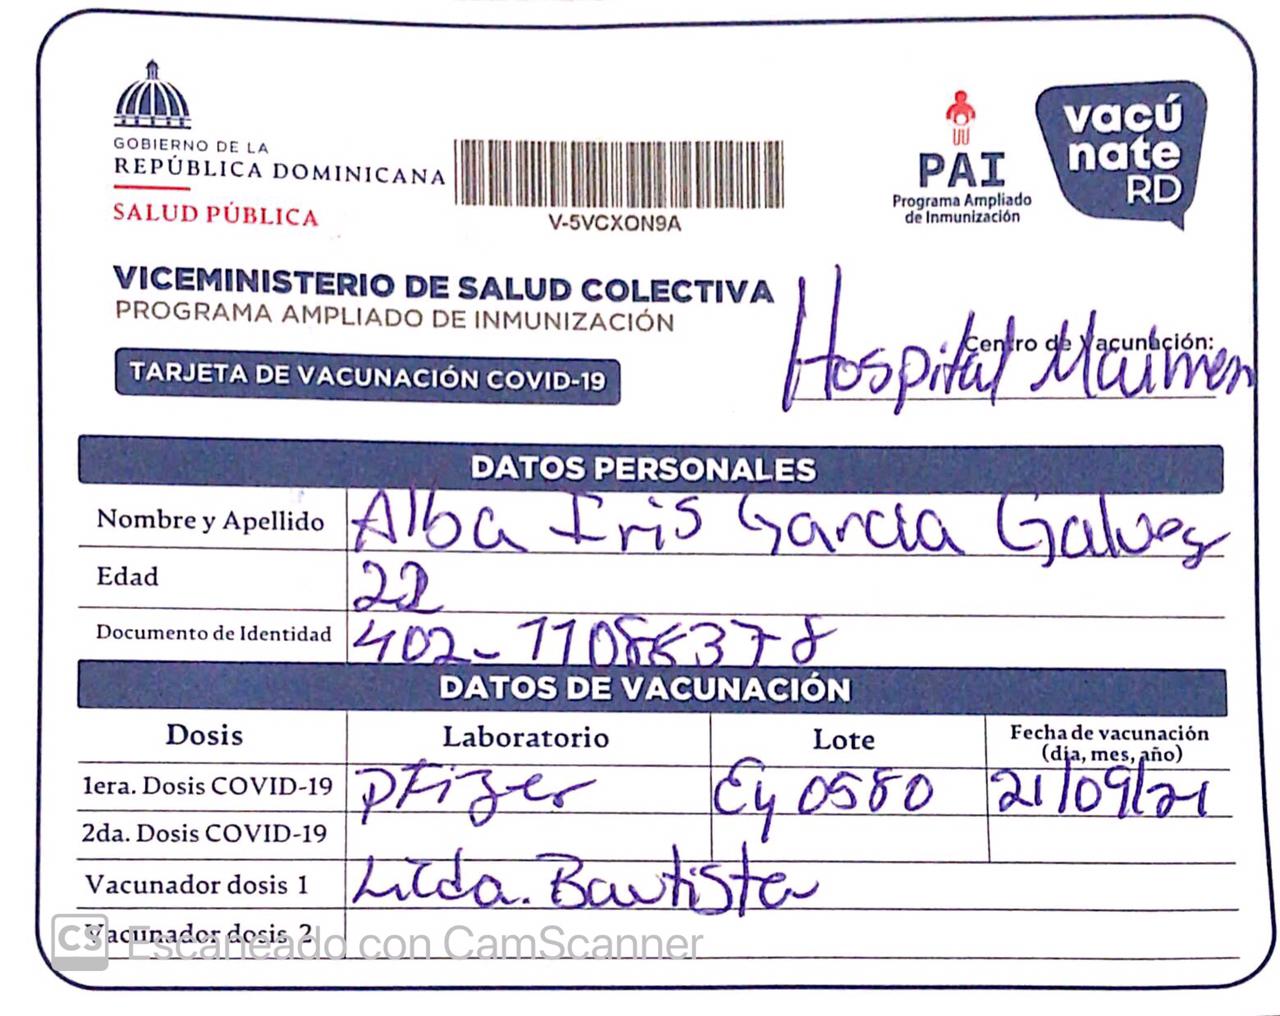 GOBIERNO DE LA
REPÚBLICA DOMINICANA
SALUD PÚBLICA
V-5VCXON9A
PAI
Programa Ampliado
de Inmunización
vacú
nate
RD
VICEMINISTERIO DE SALUD COLECTIVA
PROGRAMA AMPLIADO DE INMUNIZACIÓN
TARJETA DE VACUNACIÓN COVID-19
Centro de Vacunación:
Hospital Maimon
DATOS PERSONALES
Nombre y Apellido Alba Iris Garcia Galvez
Edad 22
Documento de Identidad 402-
DATOS DE VACUNACIÓN
Dosis Laboratorio Lote Fecha de vacunación
(día, mes, año)
1era. Dosis COVID-19 Pfizer Ey 0580 21/09/21
2da. Dosis COVID-19
Vacunador dosis 1 Licda. Bautista
Vacunador dosis 2
CS Escaneado con CamScanner